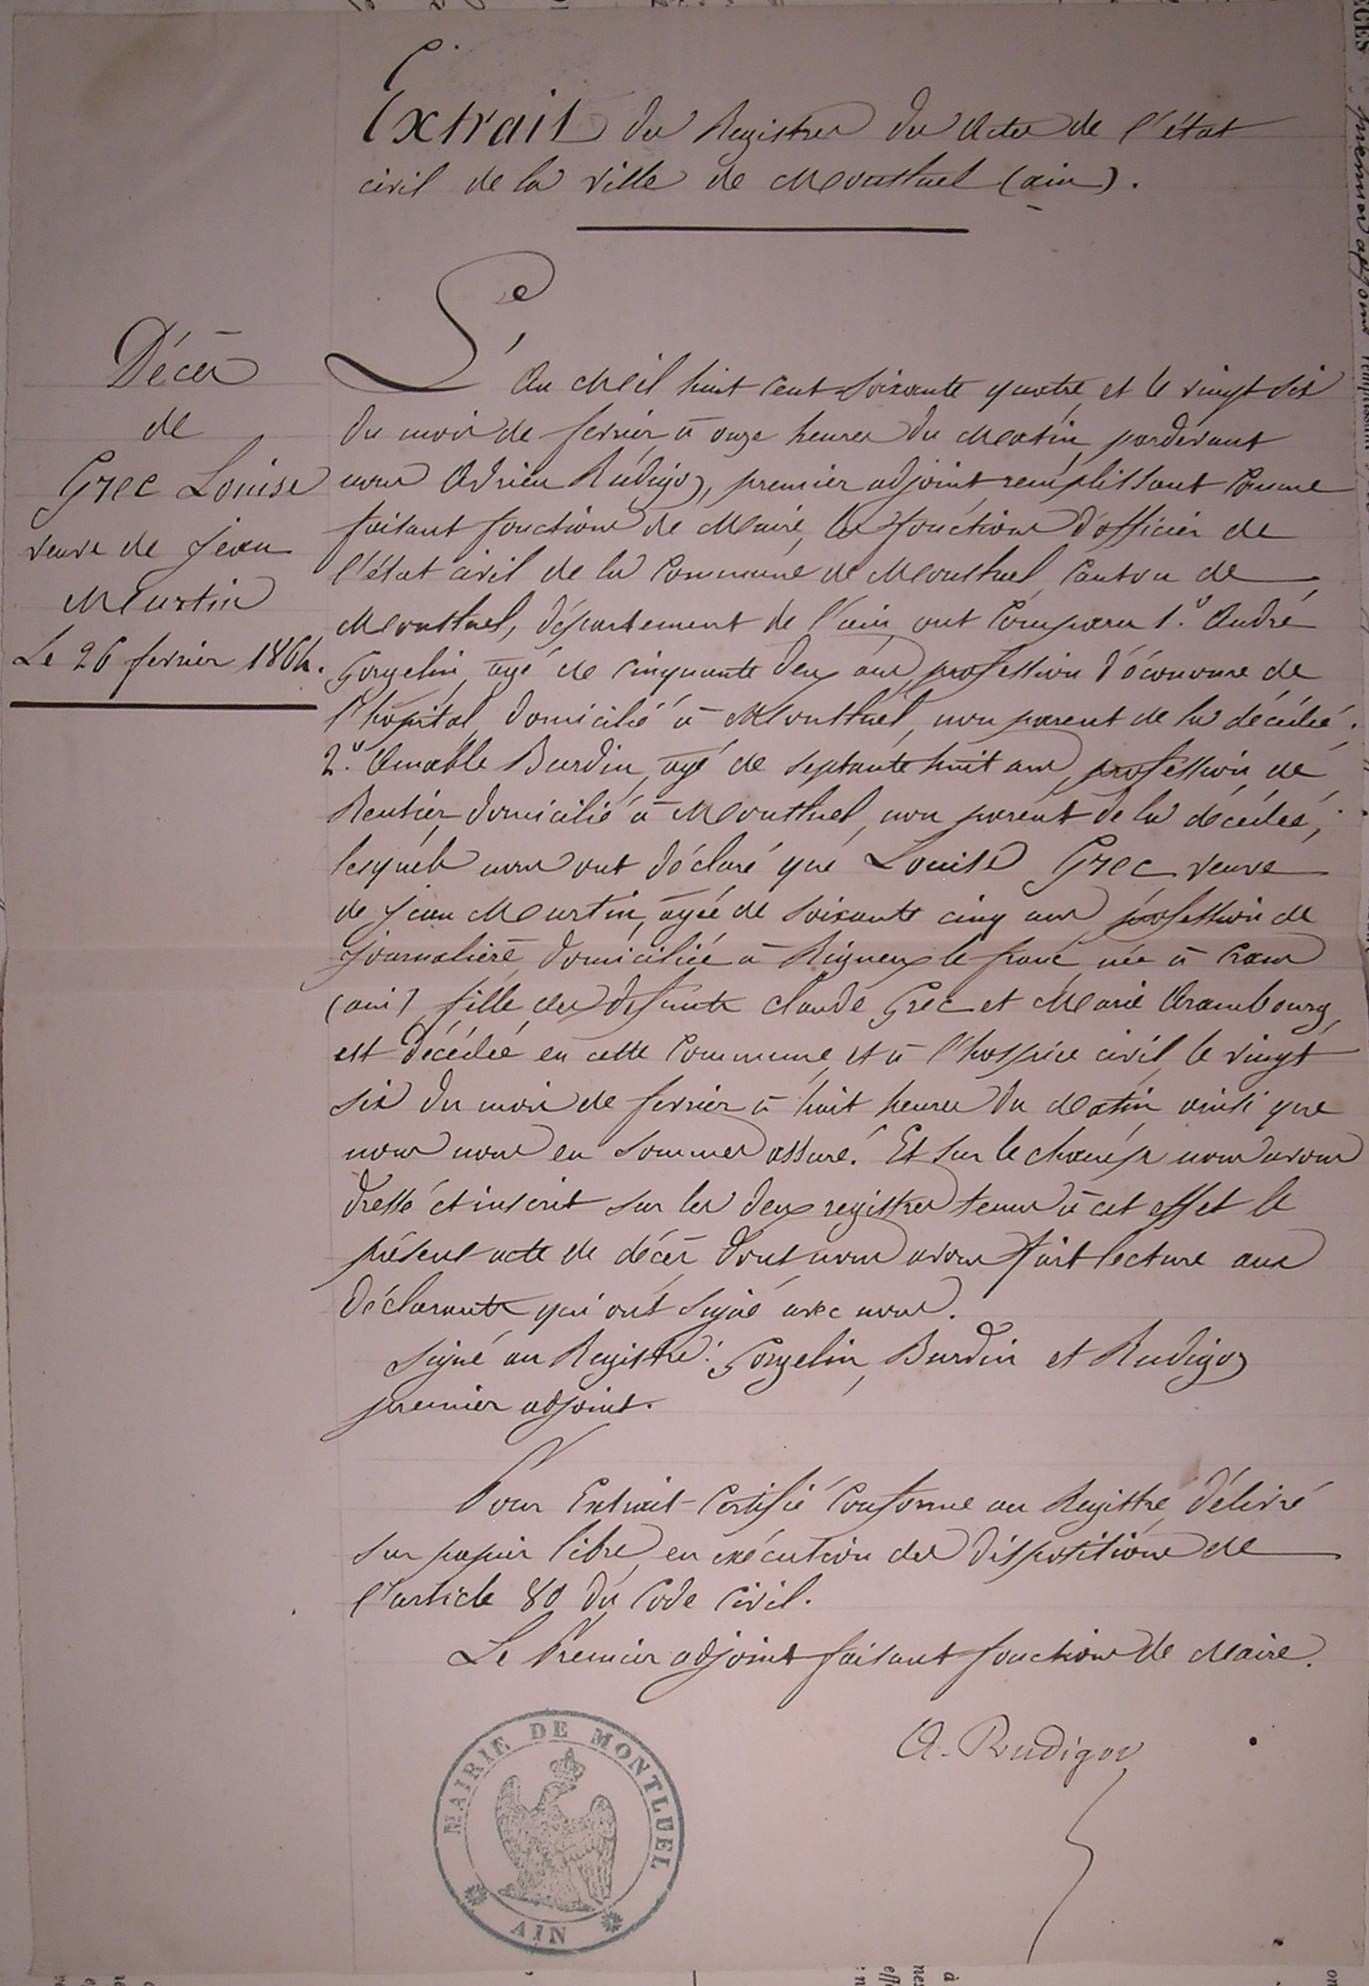 Extrait des Registres des Actes de l'état
civil de la ville de Montluel (ain).
Décès
de
Grec Louise
veuve de Jean
Murtin
Le 26 fevrier 1864.
L'An Mil huit cent soixante quatre et le vingt six
du mois de fevrier à onze heures du Matin pardevant
nous Adrien Rudigoz, premier adjoint remplissant comme
faisant fonctions de Maire, les fonctions d'officier de
l'état civil de la Commune de Montluel Canton de
Montluel, département de l'ain, ont Comparu 1.° André
Gorgelin, agé de cinquante deux ans, profession d'économe de
l'hôpital, domicilié à Montluel, non parent de la décédée.
2.° Amable Burdin, agé de septante huit ans, profession de
Rentier, domicilié à Montluel, non parent de la décédée,
lesquels nous ont déclaré que Louise Grec veuve
de Jean Murtin, agée de soixante cinq ans, profession de
Journalière, domiciliée à Rigneux le franc, née à Crans
(ain), fille des défunts Claude Grec et Marie Arambourg,
est décédée en cette Commune et à l'hospice civil, le vingt
six du mois de fevrier à huit heures du Matin ainsi que
nous nous en sommes assuré. Et sur le champ nous avons
dressé et inscrit sur les deux registres tenus à cet effet le
présent acte de décès dont nous avons fait lecture aux
déclarants qui ont signé avec nous.
Signé au Registre: Gorgelin, Burdin et Rudigoz
premier adjoint.
Pour Extrait Certifié Conforme au Registre, délivré
sur papier libre, en exécution des dispositions de
l'article 80 du Code Civil.
Le Premier adjoint faisant fonctions de Maire.
A. Rudigoz
MAIRIE DE MONTLUEL
AIN